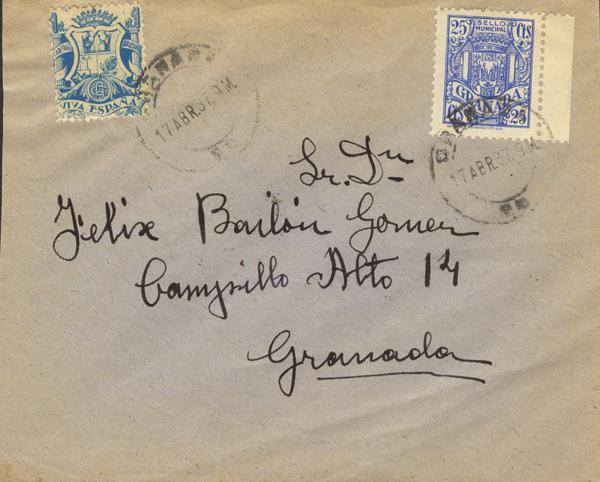 VIVA ESPAÑA
17 ABR.37. 9M.
25 SELLO MUNICIPAL Cts
GRANADA
25
GRANADA
17 ABR.37. 9M.
Sr. Dn
Felix Bailón Gomez
Campillo Alto 14
Granada